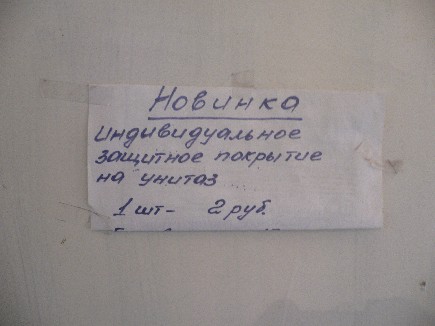 Новинка
индивидуальное
защитное покрытие
на унитаз
1 шт- 2 руб.